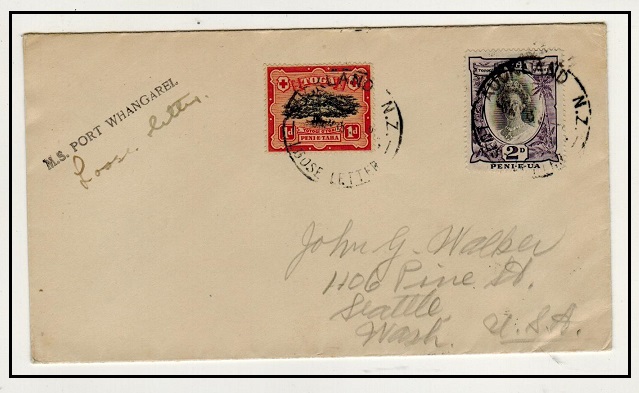 M.S. PORT WHANGAREI.
Loose letter.
TOGA
1d 1d
PENI-E-TAHA
AUCKLAND N.Z.
LOOSE LETTER
2D
PENI-E-UA
AUCKLAND N.Z.
John G. Walker
1106 Pine St.
Seattle,
Wash. U.S.A.